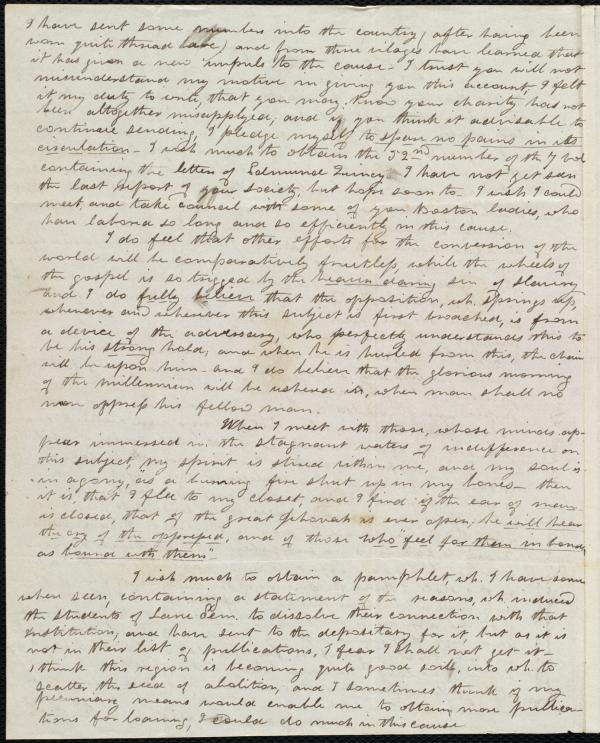 I have sent some numbers into the country, (after having been
worn quite thread bare) and from three vilages have learned that
it has given a new impulse to the cause - I trust you will not
misunderstand my motive in giving you this account, I felt
it my duty to write, that you may know your charity has not
been altogether misapplyed, and if you think it advisable to
continue sending, I pledge myself to spare no pains in its
circulation - I wish much to obtain the 52nd number of the 7 vol
containing the letter of Edmund Quincy I have not yet seen
the last report of your society, but hope soon to. I wish I could
meet and take council with some of you Boston ladies, who
have labored so long and so efficiently in this cause.
I do feel that other efforts for the conversion of the
world will be comparatively fruitless, while the wheels of
the gospel is so trigged by the heaven daring sin of slavery
and I do fully believe that the opposition, wh. springs up,
whenever and wherever this subject is first broached, is from
a device of the adversary, who perfectly understands this to
be his strong hold, and when he is hurled from this, the chain
will be upon him - and I do believe that the glorious morning
of the millennium will be ushered in, when man shall no
more oppress his fellow man.
When I meet with those, whose minds ap-
pear immersed in the stagnant waters of indifference on
this subject, my spirit is stired within me, and my soul is
in agony, as a burning fire shut up in my bones - then
it is, that I flee to my closet, and I find if the ear of man
is closed, that of the great Jehovah is ever open, he will hear
the cry of the oppressed, and of those who "feel for them in bonds
as bound with them"
I wish much to obtain a pamphlet, wh. I have some
where seen, containing a statement of the reasons, wh. induced
the students of Lane Sem. to dissolve their connection with that
Institution, and have sent to the depositary for it, but as it is
not in their list of publications, I fear I shall not get it -
I think this region is becoming quite good soil, into wh. to
scatter the seed of abolition, and I sometimes think if my
pecuniary means would enable me to obtain more publica-
tions for loaning, I could do much in this cause